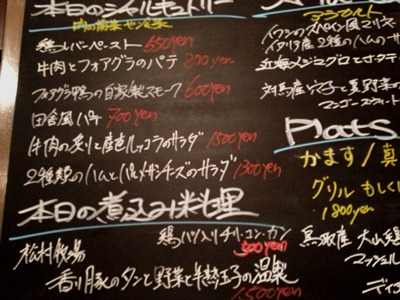 本日のシャルキュトリー
肉の前菜
鶏レバーペースト 650yen
牛肉とフォアグラのパテ 800yen
フォアグラ鴨の自家製スモーク 600yen
田舎風パテ 700yen
牛肉の炙りと ルッコラのサラダ 1500yen
2種類のハムとパルメザンチーズのサラダ 1300yen
本日の煮込み料理
鶏ハツ入りチリ・コン・カン 500yen
松村牧場
香り豚のタンと野菜と半熟玉子の温製 1500yen
イワシのスペイン風マリネ
イタリア産2種のハムの
対馬産穴子と夏野菜の
Plats
かます/真
グリル もしく
1800yen
鳥取産 大山鶏
マッシュル